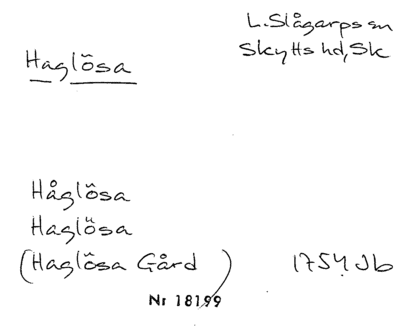 L. Slågarps sn
Skytts hd, Sk
Haglősa
Håglősa
Haglűsa
(Haglősa Gård) 1754 Jb
Nr 18199